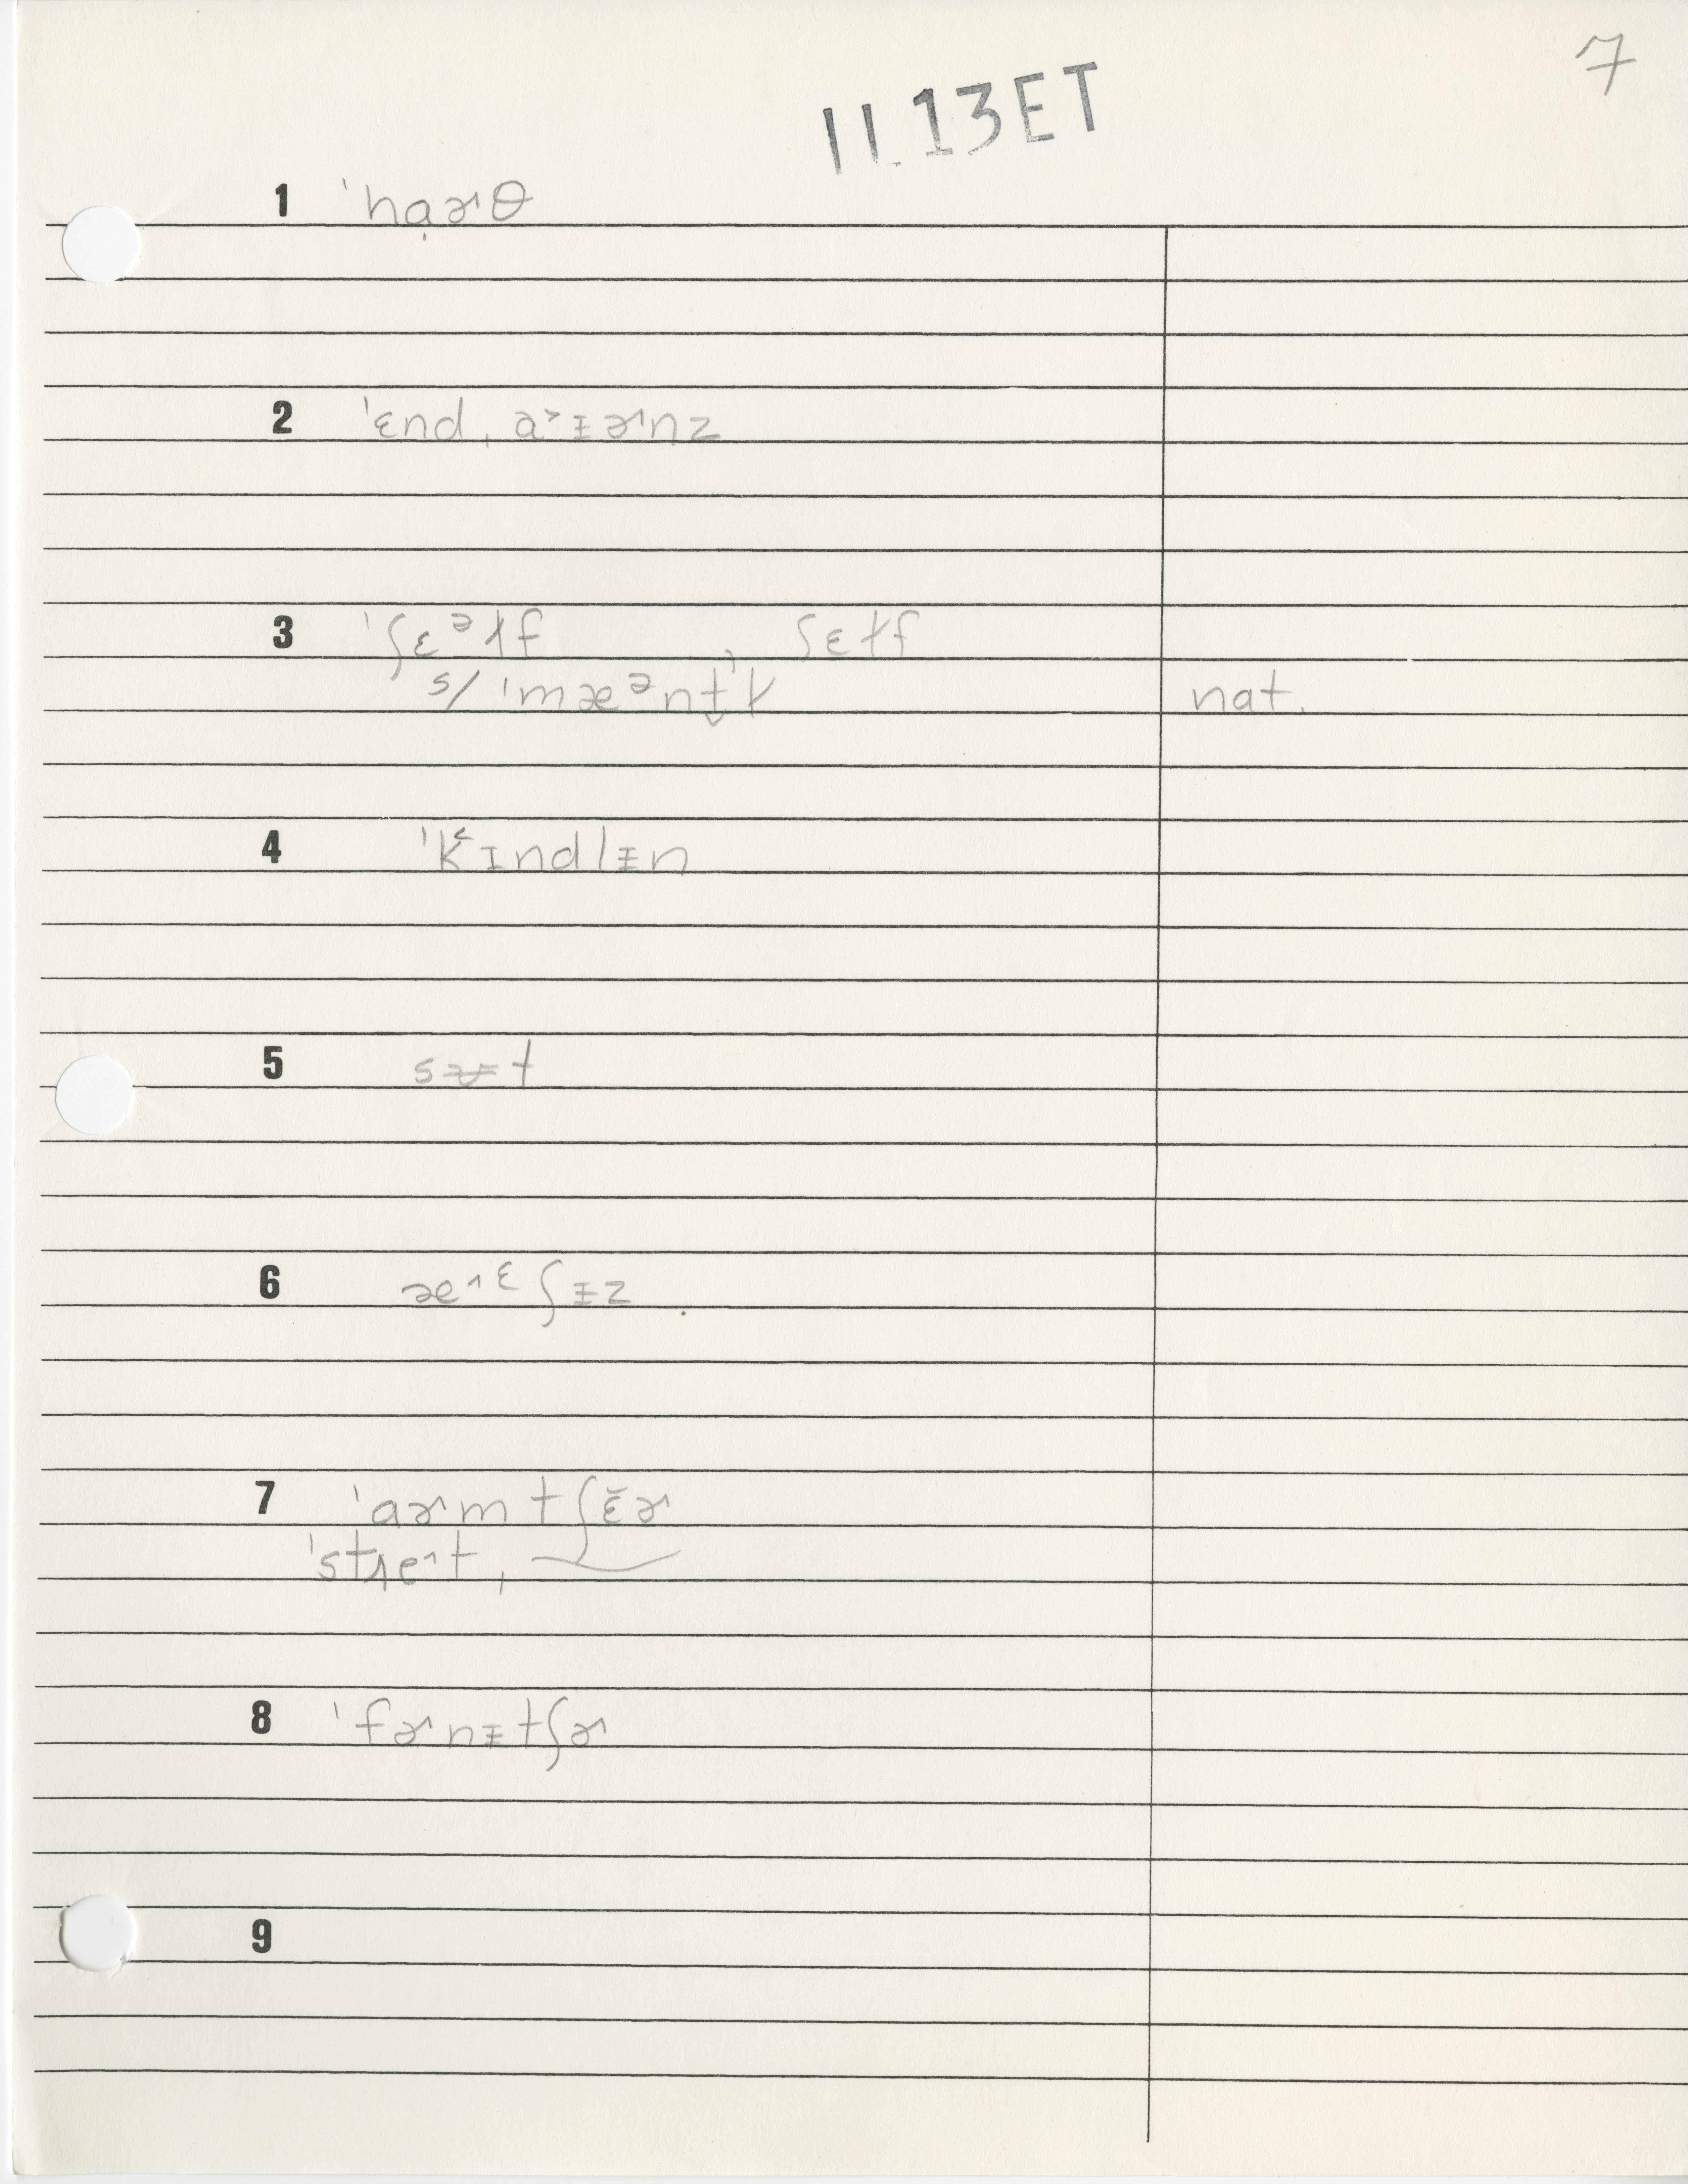 7
II.13ET
1 ˈhɑ̣ɚθ
2 ˈɛnd, a˃ᵻɚnz
3 ˈʃɛᵊɫf, ʃɛɫf
s/ ˈmæᵊnt̬ɫ nat.
4 ˈk˂ɪndlᵻn
5
6 æ^ɛʃᵻz
7 ˈaɚm tʃɛ̆ɚ
ˈstɹe^t,
8 ˈfɚnᵻtʃɚ
9